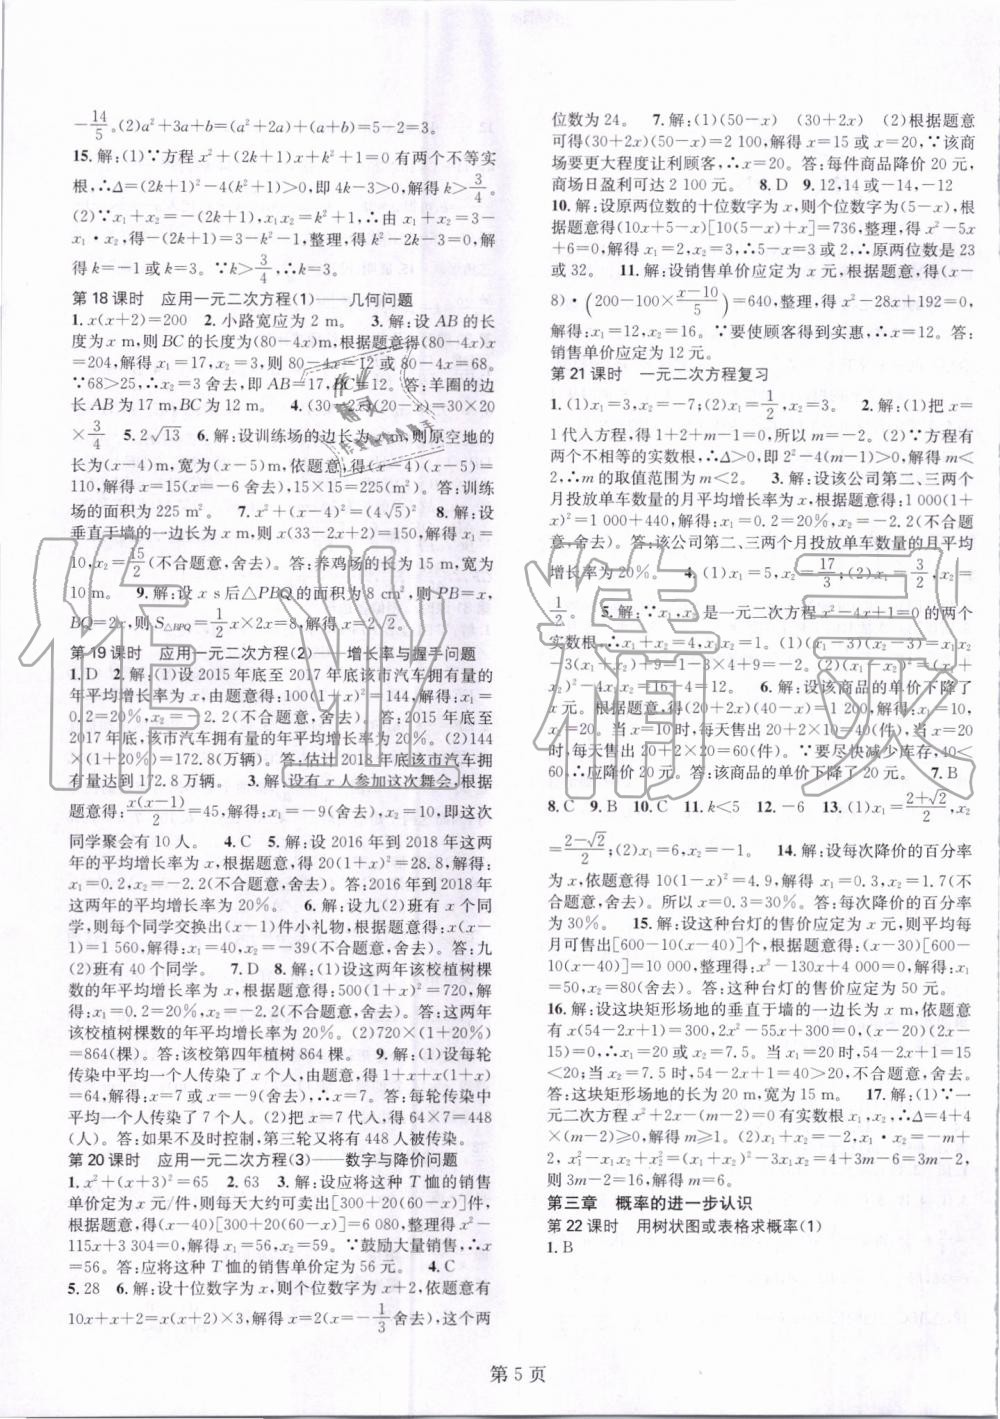 -14/5。(2)a²+3a+b=(a²+2a)+(a+b)=5-2=3。
15. 解:(1)∵方程 x²+(2k+1)x+k²+1=0 有两个不等实
根,∴Δ=(2k+1)²-4(k²+1)>0,即 4k-3>0,解得 k>3/4。
(2)∵x₁+x₂=-(2k+1),x₁x₂=k²+1,∴由 x₁+x₂=3-
x₁·x₂,得-(2k+1)=3-k²-1,整理,得 k²-2k-3=0,解
得 k=-1 或 k=3。∵k>3/4,∴k=3。
第 18 课时 应用一元二次方程(1)——几何问题
1. x(x+2)=200 2. 小路宽应为 2 m。 3. 解:设 AB 的长
度为 x m,则 BC 的长度为(80-4x)m,根据题意得(80-4x)x
=204,解得 x₁=17,x₂=3,则 80-4x=12 或 80-4x=68。
∵68>25,∴x₂=3 舍去,即 AB=17,BC=12。答:羊圈的边
长 AB 为 17 m,BC 为 12 m。 4. (30-2x)(20-x)=30×20
×3/4 5. 2√13 6. 解:设训练场的边长为 x m,则原空地的
长为(x-4)m,宽为(x-5)m,依题意,得(x-4)(x-5)=
110,解得 x=15(x=-6 舍去),15×15=225(m²)。答:训练
场的面积为 225 m²。 7. x²+(x-4)²=(4√5)² 8. 解:设
垂直于墙的一边长为 x m,则 x(33-2x+2)=150,解得 x₁=
10,x₂=15/2(不合题意,舍去)。答:养鸡场的长为 15 m,宽为
10 m。 9. 解:设 x s后△PBQ的面积为 8 cm²,则 PB=x,
BQ=2x,则 S△BPQ=1/2x×2x=8,解得 x=2√2。
第 19 课时 应用一元二次方程(2)——增长率与握手问题
1. D 2. 解:(1)设 2015 年底至 2017 年底该市汽车拥有量的
年平均增长率为 x,由题意得:100(1+x)²=144,解得:x₁=
0.2=20%,x₂=-2.2(不合题意,舍去)。答:2015 年底至
2017 年底,该市汽车拥有量的年平均增长率为 20%。(2)144
×(1+20%)=172.8(万辆)。答:估计 2018 年底该市汽车拥
有量达到 172.8 万辆。 3. 解:设有 x 人参加这次舞会,根据
题意得:x(x-1)/2=45,解得:x₁=-9(舍去),x₂=10,即这次
同学聚会有 10 人。 4. C 5. 解:设 2016 年到 2018 年这两
年的平均增长率为 x,根据题意得 20(1+x)²=28.8,解得:
x₁=0.2=20%,x₂=-2.2(不合题意,舍去)。答:2016 年到 2018 年
这两年的平均增长率为 20%。 6. 解:设九(2)班有 x 个同
学,则每个同学交换出(x-1)件小礼物,根据题意得:x(x-
1)=1 560,解得:x₁=40,x₂=-39(不合题意,舍去)。答:九
(2)班有 40 个同学。 7. D 8. 解:(1)设这两年该校植树棵
数的年平均增长率为 x,根据题意得:500(1+x)²=720,解得:
x₁=0.2=20%,x₂=-2.2(不合题意,舍去)。答:这两年
该校植树棵数的年平均增长率为 20%。(2)720×(1+20%)
=864(棵)。答:该校第四年植树 864 棵。 9. 解:(1)设每轮
传染中平均一个人传染了 x 个人,根据题意得:1+x+x(x+1)=
64,解得:x=7或 x=-9(舍去)。答:每轮传染中
平均一个人传染了 7 个人。(2)把 x=7 代入,得 64×7=448
(人)。答:如果不及时控制,第三轮又将有 448 人被传染。
第 20 课时 应用一元二次方程(3)——数字与降价问题
1. x²+(x+4)²=10(x+4)+x-4 2. 63 3. 解:设应将这种 T 恤的销售
单价定为 x 元/件,则每天大约可卖[300+20(60-x)]件,根据
题意得(x-40)[300+20(60-x)]=6 080,整理得 x²-
115x+3 304=0,解得 x₁=56,x₂=59。∵鼓励大量销售,∴x
=56。答:应将这种 T 恤的销售单价定为 56 元。 4. C
5. 28 6. 解:设十位数字为 x,则个位数字为 x+2,依题意有
10x+x+2=x(x+2)×3,解得 x=2(x=-1/3 舍去),这个两
位数为 24。 7. 解:(1)(50-x) (30+2x) (2)根据题意
可得(30+2x)(50-x)=2 100,解得 x=15 或 x=20,∵该商
场要更大程度让利顾客,∴x=20。答:每件商品降价 20 元,
商场日盈利可达 2 100 元。 8. D 9. 12,14 或-14,-12
10. 解:设原两位数的十位数字为 x,则个位数字为(5-x),根
据题意得(10x+5-x)[10(5-x)+x]=736,整理,得 x²-5x
+6=0,解得 x=2 或 x=3,∴5-x=3 或 2,∴原两位数是 23
或 32。 11. 解:设销售单价应定为 x 元,根据题意,得(x-
8)·(200-100×(x-10)/5)=640,整理,得 x²-28x+192=0,
解得:x₁=12,x₂=16。∵要使顾客得到实惠,∴x=12。答:
销售单价应定为 12 元。
第 21 课时 一元二次方程复习
1. (1)x₁=3,x₂=-7;(2)x₁=1/2,x₂=3。 2. 解:(1)把 x=
1代入方程,得 1+2+m-1=0,所以 m=-2。(2)∵方程有
两个不相等的实数根,∴Δ>0,即 2²-4(m-1)>0,解得 m<
2,∴m 的取值范围为 m<2。 3. 解:设该公司第二、三两个
月投放单车数量的月平均增长率为 x,根据题意得:1 000(1+
x)²=1 000+440,解得:x₁=0.2=20%,x₂=-2.2(不合题
意,舍去)。答:该公司第二、三两个月投放单车数量的月平均
增长率为 20%。 4. (1)x₁=5,x₂=-17/3;(2)x₁=3/2,x₂=
1/2。 5. 解:∵x₁,x₂是一元二次方程 x²-4x+1=0 的两个
实数根,∴x₁+x₂=4,x₁x₂=1。(1)(x₁-3)(x₂-3)=x₁x₂
-3(x₁+x₂)+9=1-3×4+9=-2。(2)(x₁-x₂)²=(x₁+
x₂)²-4x₁x₂=16-4=12。 6. 解:设该商品的单价下降了
x 元。根据题意得:(20+2x)(40-x)=1 200,解得:x₁=10,
x₂=20。当 x=10 时,每天售出 20+2×10=40(件),当 x=20
时,每天售出 20+2×20=60(件)。∵要尽快减少库存,40<60,
∴x=20。答:该商品的单价下降了 20 元。 7. B
8. C 9. B 10. C 11. k<5 12. -6 13. (1)x₁=(2+√2)/2,x₂
=(2-√2)/2;(2)x₁=6,x₂=-1。 14. 解:设每次降价的百分率
为 x,依题意得 10(1-x)²=4.9,解得 x=0.3,x=1.7(不
合题意,舍去)。所以 x=0.3=30%。答:每次降价的百分率
为 30%。 15. 解:设这种台灯的售价应定为 x 元,则平均每
月可售出[600-10(x-40)]盏,根据题意得:(x-30)[600-
10(x-40)]=10 000,整理得:x²-130x+4 000=0,解得:x₁=
50,x₂=80(舍去)。答:这种台灯的售价应定为 50 元。
16. 解:设这块矩形场地的垂直于墙的一边长为 x m,依题意
有 x(54-2x+1)=300,2x²-55x+300=0,(x-20)(2x-
15)=0,∴x₁=20 或 x₂=7.5。当 x=20 时,54-2x+1=15
<20;当 x=7.5 时,54-2x+1=40>20(不合题意,舍去)。
答:这块矩形场地的长为 20 m,宽为 15 m。 17. 解:(1)∵一
元二次方程 x²+2x-(m-2)=0 有实数根,∴Δ=4+4
×(m-2)≥0,解得 m≥1。(2)x₁+x₂=-2,x₁x₂=-m+
2,∴x₁²+x₂²=(x₁+x₂)²-2x₁x₂=(-2)²-2(-m+2)=12,
则 3m-2=16,解得 m=6。
第三章 概率的进一步认识
第 22 课时 用树状图或表格求概率(1)
1. B
作业精灵
第 5 页